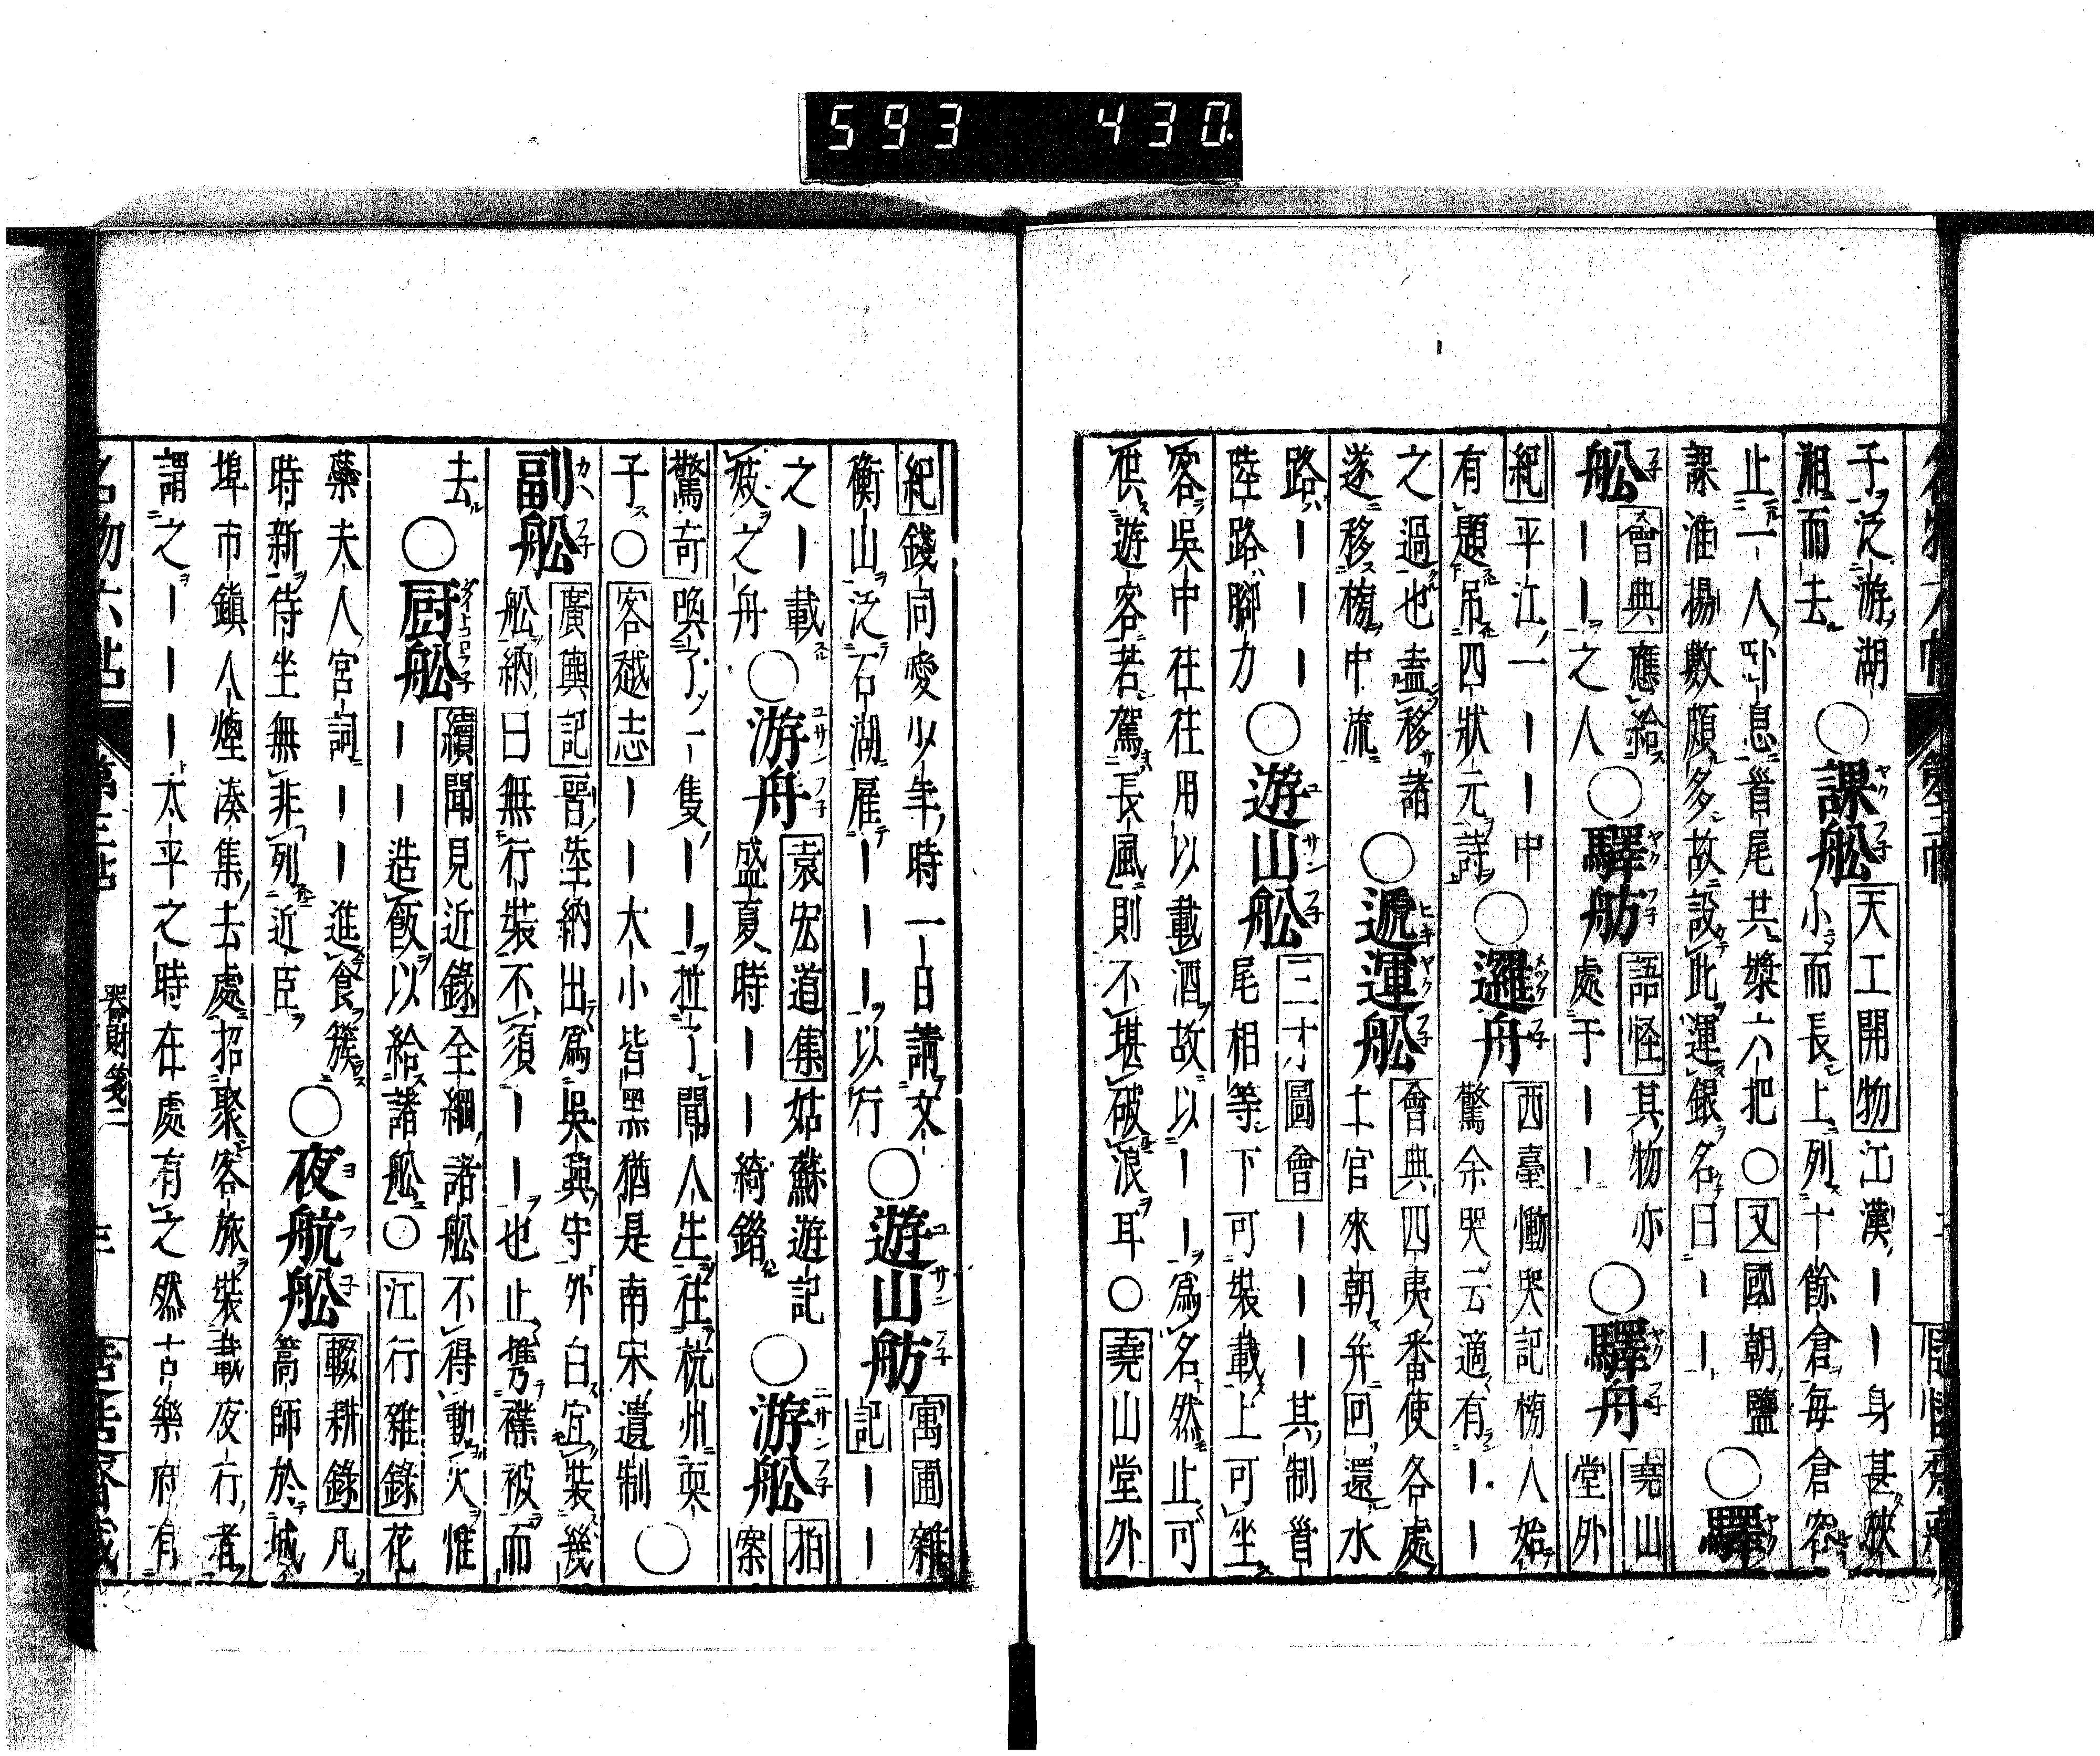 593 430
子泛游湖
湘而去
○課舩
天工開物江漢――身甚狹
小而長上列十餘倉每倉容
止一人卧息首尾共槳六把○又國朝鹽
課淮揚數頗多故設此運銀名曰――
○驛
舩
會典應給
――之人
○驛舫
語怪其物亦
處于――
○驛舟
堯山
堂外
紀平江一――中
有題吊四狀元詩
○邏舟
西臺慟哭記榜人始
驚余哭云適有――
之過也盍移諸
遂移榜中流
○遞運舩
會典四夷番使各處
土官來朝并回還水
路―――
陸路腳力
○遊山舩
三才圖會―――其制首
尾相等下可裝載上可坐
客吳中往往用以載酒故以――爲名然止可
供遊客若駕長風則不堪破浪耳○堯山堂外
紀錢同愛少年時一日請文
衡山泛石湖雇―――以行
○遊山舫
寓圃雜
記――
之―載
妓之舟
○游舟
袁宏道集姑蘇遊記
盛夏時――綺錯
○游舩
拍
案
驚奇喚了一隻――並了聞人生往杭州耍
子○客越志――大小皆黑猶是南宋遺制
○
副舩
廣輿記晉陸納出爲吳興守外白宜裝幾
舩納曰無行裝不須――也止攜襆被而
去
○厨舩
續聞見近錄全綱諸舩不得動火惟
――造飯以給諸舩○江行雜錄花
藥夫人宮詞――進食簇
時新侍坐無非列近臣
○夜航舩
輟耕錄凡
篙師於城
埠市鎮人煙湊集去處招聚客旅裝載夜行者
謂之―――太平之時在處有之然古樂府有
器財箋二